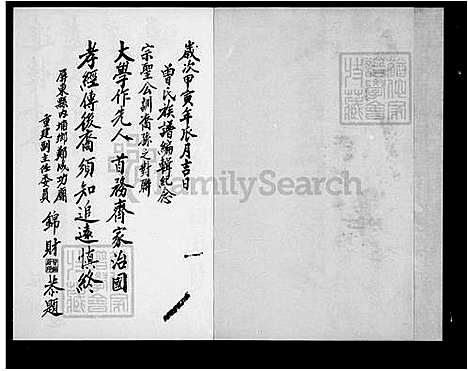 歲次甲寅年水月吉日
曾氏族譜編輯紀念
宗聖公訓裔孫之對聯
大學作先人首務齊家治國
孝經傳後裔須知追遠慎終
屏東縣內埔鄉鄭成功廟
重建副主任委員
錦財 恭題
一
FamilySearch